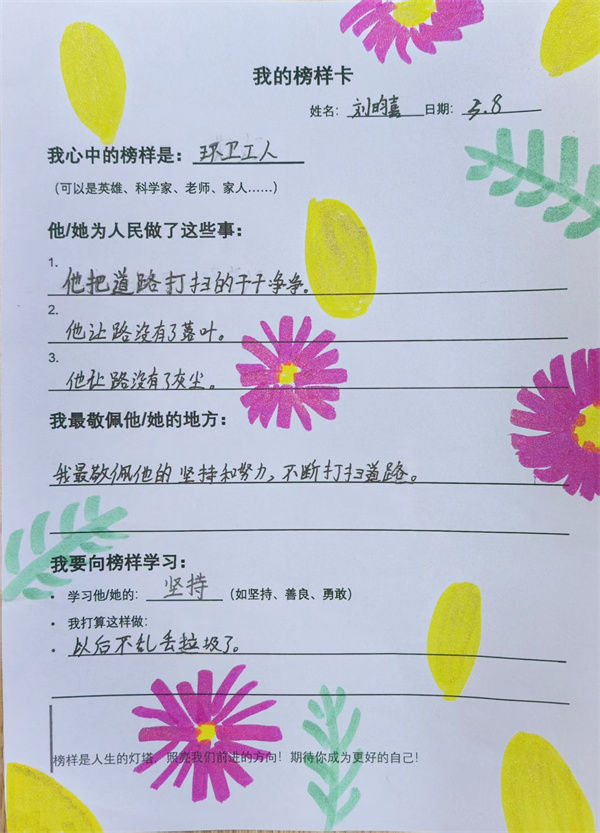 我的榜样卡
姓名：刘昀熹 日期：3.8
我心中的榜样是：环卫工人
（可以是英雄、科学家、老师、家人……）
他/她为人民做了这些事：
1.
他把道路打扫的干干净净。
2.
他让路没有了落叶。
3.
他让路没有了灰尘。
我最敬佩他/她的地方：
我最敬佩他的坚持和努力，不断打扫道路。
我要向榜样学习：
• 学习他/她的：坚持（如坚持、善良、勇敢）
• 我打算这样做：
• 以后不乱丢垃圾了。
榜样是人生的灯塔，照亮我们前进的方向！期待你成为更好的自己！